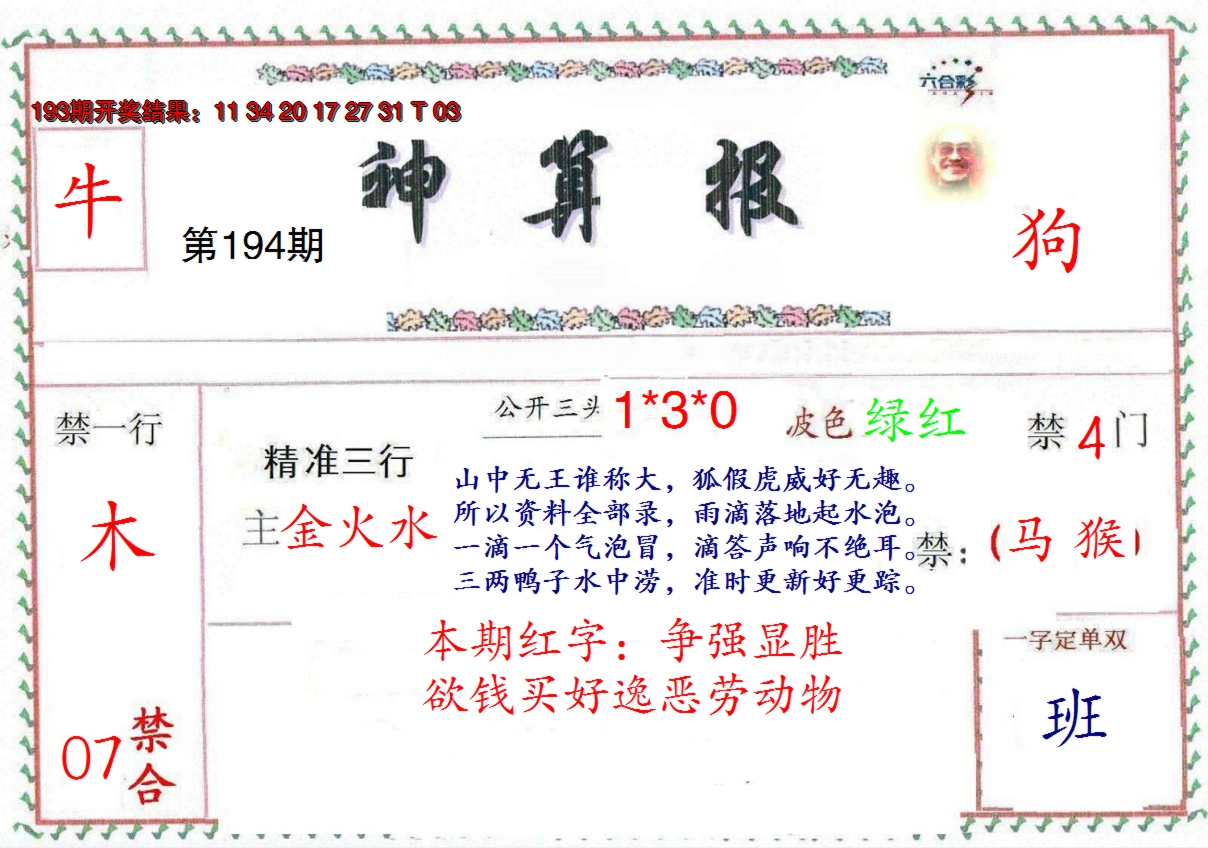 193期开奖结果：11 34 20 17 27 31 T 03
六合彩
牛
第194期
神算报
狗
禁一行
木
07
禁合
精准三行
主金火水
公开三头 1*3*0
波色 绿红
禁4门
禁：（马 猴）
山中无王谁称大，狐假虎威好无趣。
所以资料全部录，雨滴落地起水泡。
一滴一个气泡冒，滴答声响不绝耳。
三两鸭子水中涝，准时更新好更踪。
本期红字：争强显胜
欲钱买好逸恶劳动物
一字定单双
班